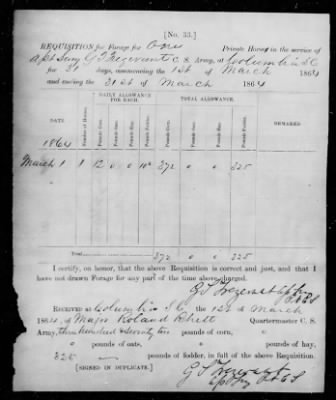 [No. 33.]
REQUISITION for Forage for One Private Horse in the service of
Asst Surg G T Trezevant C. S. Army, at Columbia S C
for 31 days, commencing the 1st of March 1864
and ending the 31st of March 1864
DAILY ALLOWANCE FOR EACH. TOTAL ALLOWANCE.
DATE Number of Horses. Pounds Corn. Pounds Oats. Pounds Hay. Pounds Fodder. Pounds Corn. Pounds Oats. Pounds Hay. Pounds Fodder. REMARKS
1864
March 1 1 12 0 0 10 372 0 0 325
Total 372 0 0 325
I certify, on honor, that the above Requisition is correct and just, and that I
have not drawn Forage for any part of the time above charged.
G T Trezevant
RECEIVED at Columbia S C the 1st of March
1864, of Major Roland Rhett Quartermaster C. S.
Army, three hundred & seventy two pounds of corn,
0 pounds of oats, 0 pounds of hay,
325 pounds of fodder, in full of the above Requisition.
[SIGNED IN DUPLICATE.]
G T Trezevant